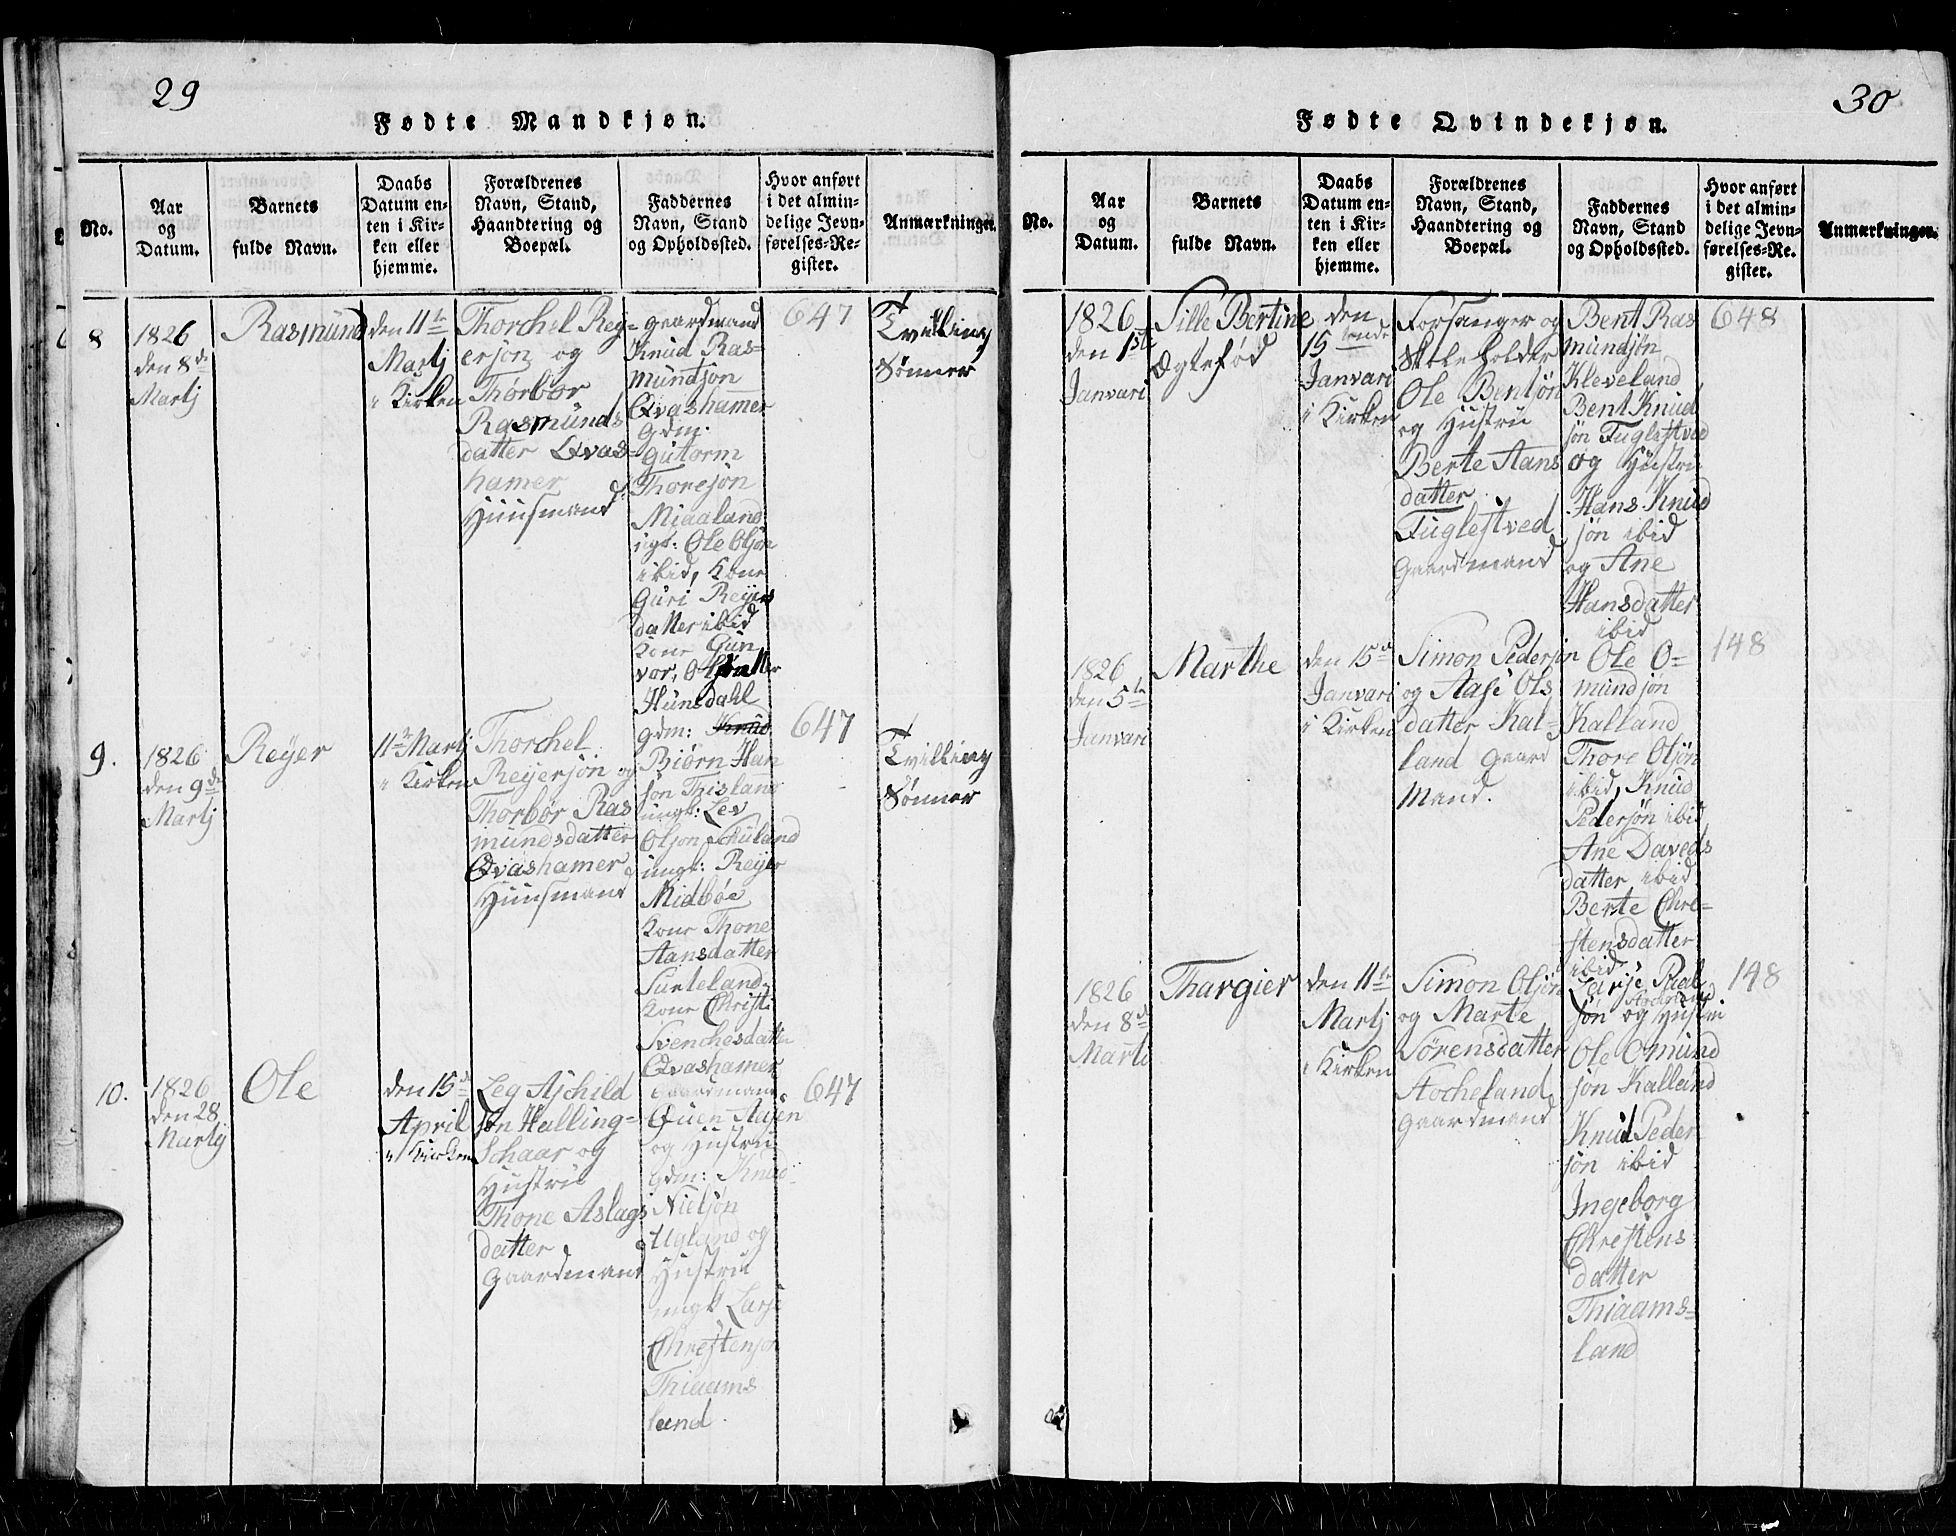 29
Fødte Mandkjøn.
No.
Aar
og
Datum.
Barnets
fulde Navn.
Daabs
Datum en-
ten i Kir-
ken eller
hjemme.
Forældrenes
Navn, Stand,
Haandtering og
Boepæl.
Faddernes
Navn, Stand
og Opholdssted.
Hvor anført
i det almin-
delige Jevn-
førelses-Re-
gister.
Anmærkninger.
8
1826
den 8de
Martj
Rasmund
den 11te
Martj
i Kirken
Thorchel Rey-
erjøn og
Thorbor
Rasmunds
datter Qvas-
hamer
Huusmand
gaardmand
Knud Ras-
mundsøn
Qvashamer
gdm.
Gutorm
Thorejøn
Miaaland
ugk: Ole Oljøn
ibid, Kone
Guri Reyers
datter ibid
Kone Gun
vor, Olsdatter
Hunsdahl
647
Tvilling
Sønner
9.
1826
den 9de
Martj
Reyer
11te Martj
i Kirken
Thorchel
Reyersjøn og
Thorbør Ras
mundsdatter
Qvashamer
Huusmand
gdm: Knud
Biørn Han
søn Thisland
ungk: Lev
Oljøn Schuland
ungk: Reyer
Midbøe
Kone Thone
Aansdatter
Surteland
Kone Christi
Svenchesdatte
Qvashamer
647
Tvilling
Sønner
10.
1826
den 28
Martij
Ole
den 15de
April
i Kirken
Leg Ajchild
søn Halling-
Schaar og
Hustru
Thone Aslags
datter
Gaardmand
Gaardmand
Quen Aasen
og Hustru
gdm: Knud
Nieljøn
Ugland og
Hustru
ungk Larje
Chrestensøn
Thiaams
land.
647
30
Fødte Qvindekjøn.
No.
Aar
og
Datum.
Barnets
fulde Navn.
Daabs
Datum en-
ten i Kir-
ken eller
hjemme.
Forældrenes
Navn, Stand,
Haandtering og
Boepæl.
Faddernes
Navn, Stand
og Opholdssted.
Hvor anført
i det almin-
delige Jevn-
førelses-Re-
gister.
Anmærkninger.
1826
den 1ste
Janvari
Sille Bertine
Ægtefød
den
15 tende
Janvari
i Kirken
Forsanger og
Skoleholder
Ole Bentjøn
og Hustru
Berte Aans
datter
Fuglestved
Gaardmand
Bent Ras
mundsjøn
Kleveland
Bent Knud
jøn Fuglestved
og Hustru
Hans Knud
jøn ibid
og Ane
Hansdatter
ibid
648
1826
den 5te
Janvari
Marthe
den 15de
Janvari
i Kirken
Simon Pedersøn
og Aase Ols
datter Kal-
land Gaard
Mand.
Ole O-
mundjøn
Kalland
Thore Oljøn
ibid, Knud
Pedersjøn ibid
Ane Daveds
datter ibid
Berte Chre-
stensdatter
ibid
148
1826
den 8de
Marti
Thargier
den 11te
Martj
i Kirken
Simon Oljøn
og Marte
Sørensdatter
Stocheland
Gaardmand
Larje Paal
Stocheland
søn og Hustru
Ole Omund
jøn Kalland
Knud Peder
søn ibid
Ingeborg
Chrestens
datter
Thiaams-
land
148